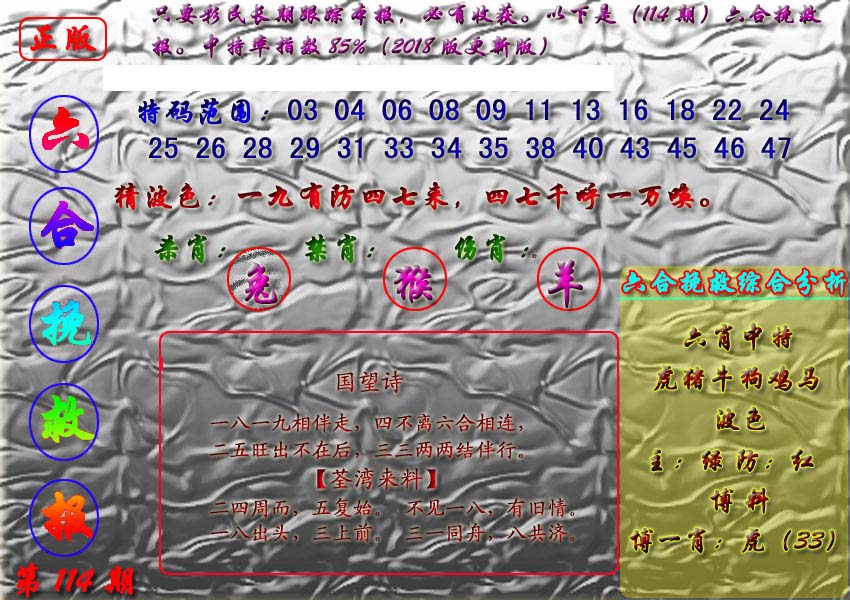 正版
只要彩民长期跟踪本报，必有收获。以下是（114期）六合挽救
报。中特率指数85%（2018版更新版）
六
合
挽
救
报
第114期
特码范围：03 04 06 08 09 11 13 16 18 22 24
25 26 28 29 31 33 34 35 38 40 43 45 46 47
猜波色：一九有防四七来，四七千呼一万唤。
杀肖：兔 禁肖：猴 伤肖：羊
国望诗
一八一九相伴走，四不离六合相连，
二五旺出不在后，三三两两结伴行。
【荃湾来料】
二四周而，五复始。 不见一八，有旧情。
一八出头，三上前。 三一同舟，八共济。
六合挽救综合分析
六肖中特
虎猪牛狗鸡马
波色
主：绿防：红
博料
博一肖：虎（33）